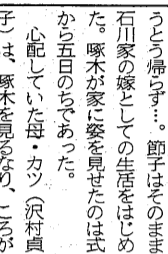 うとう帰らず…。節子はそのまま
石川家の嫁としての生活をはじめ
た。啄木が家に姿を見せたのは式
から五日のちであった。
　心配していた母・カツ（沢村貞
子）は、啄木を見るなり、ころが